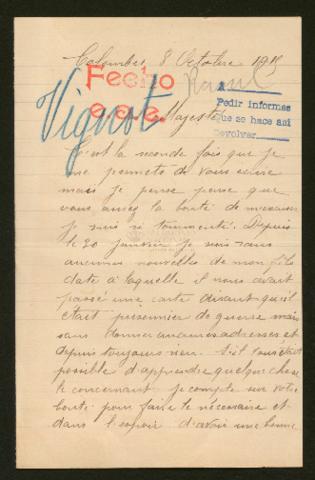 Colombes, 8 Octobre 191
Fecho
Raoul
Vignot
Majesté
A
Pedir informes
que se hace asi
Devolver
C'est la seconde fois que je
me permets de vous écrire
mais je pense que
vous aurez la bonté de m'excuser
je suis si tourmentée. Depuis
le 20 janvier je suis sans
aucunes nouvelles de mon fils
date à laquelle il nous avait
passé une carte disant qu'il
était prisonnier de guerre mais
sans donner aucunes adresses et
depuis toujours rien. S'il vous était
possible d'apprendre quelque chose
le concernant je compte sur votre
bonté pour faire le nécessaire et
dans l'espoir d'avoir une bonne